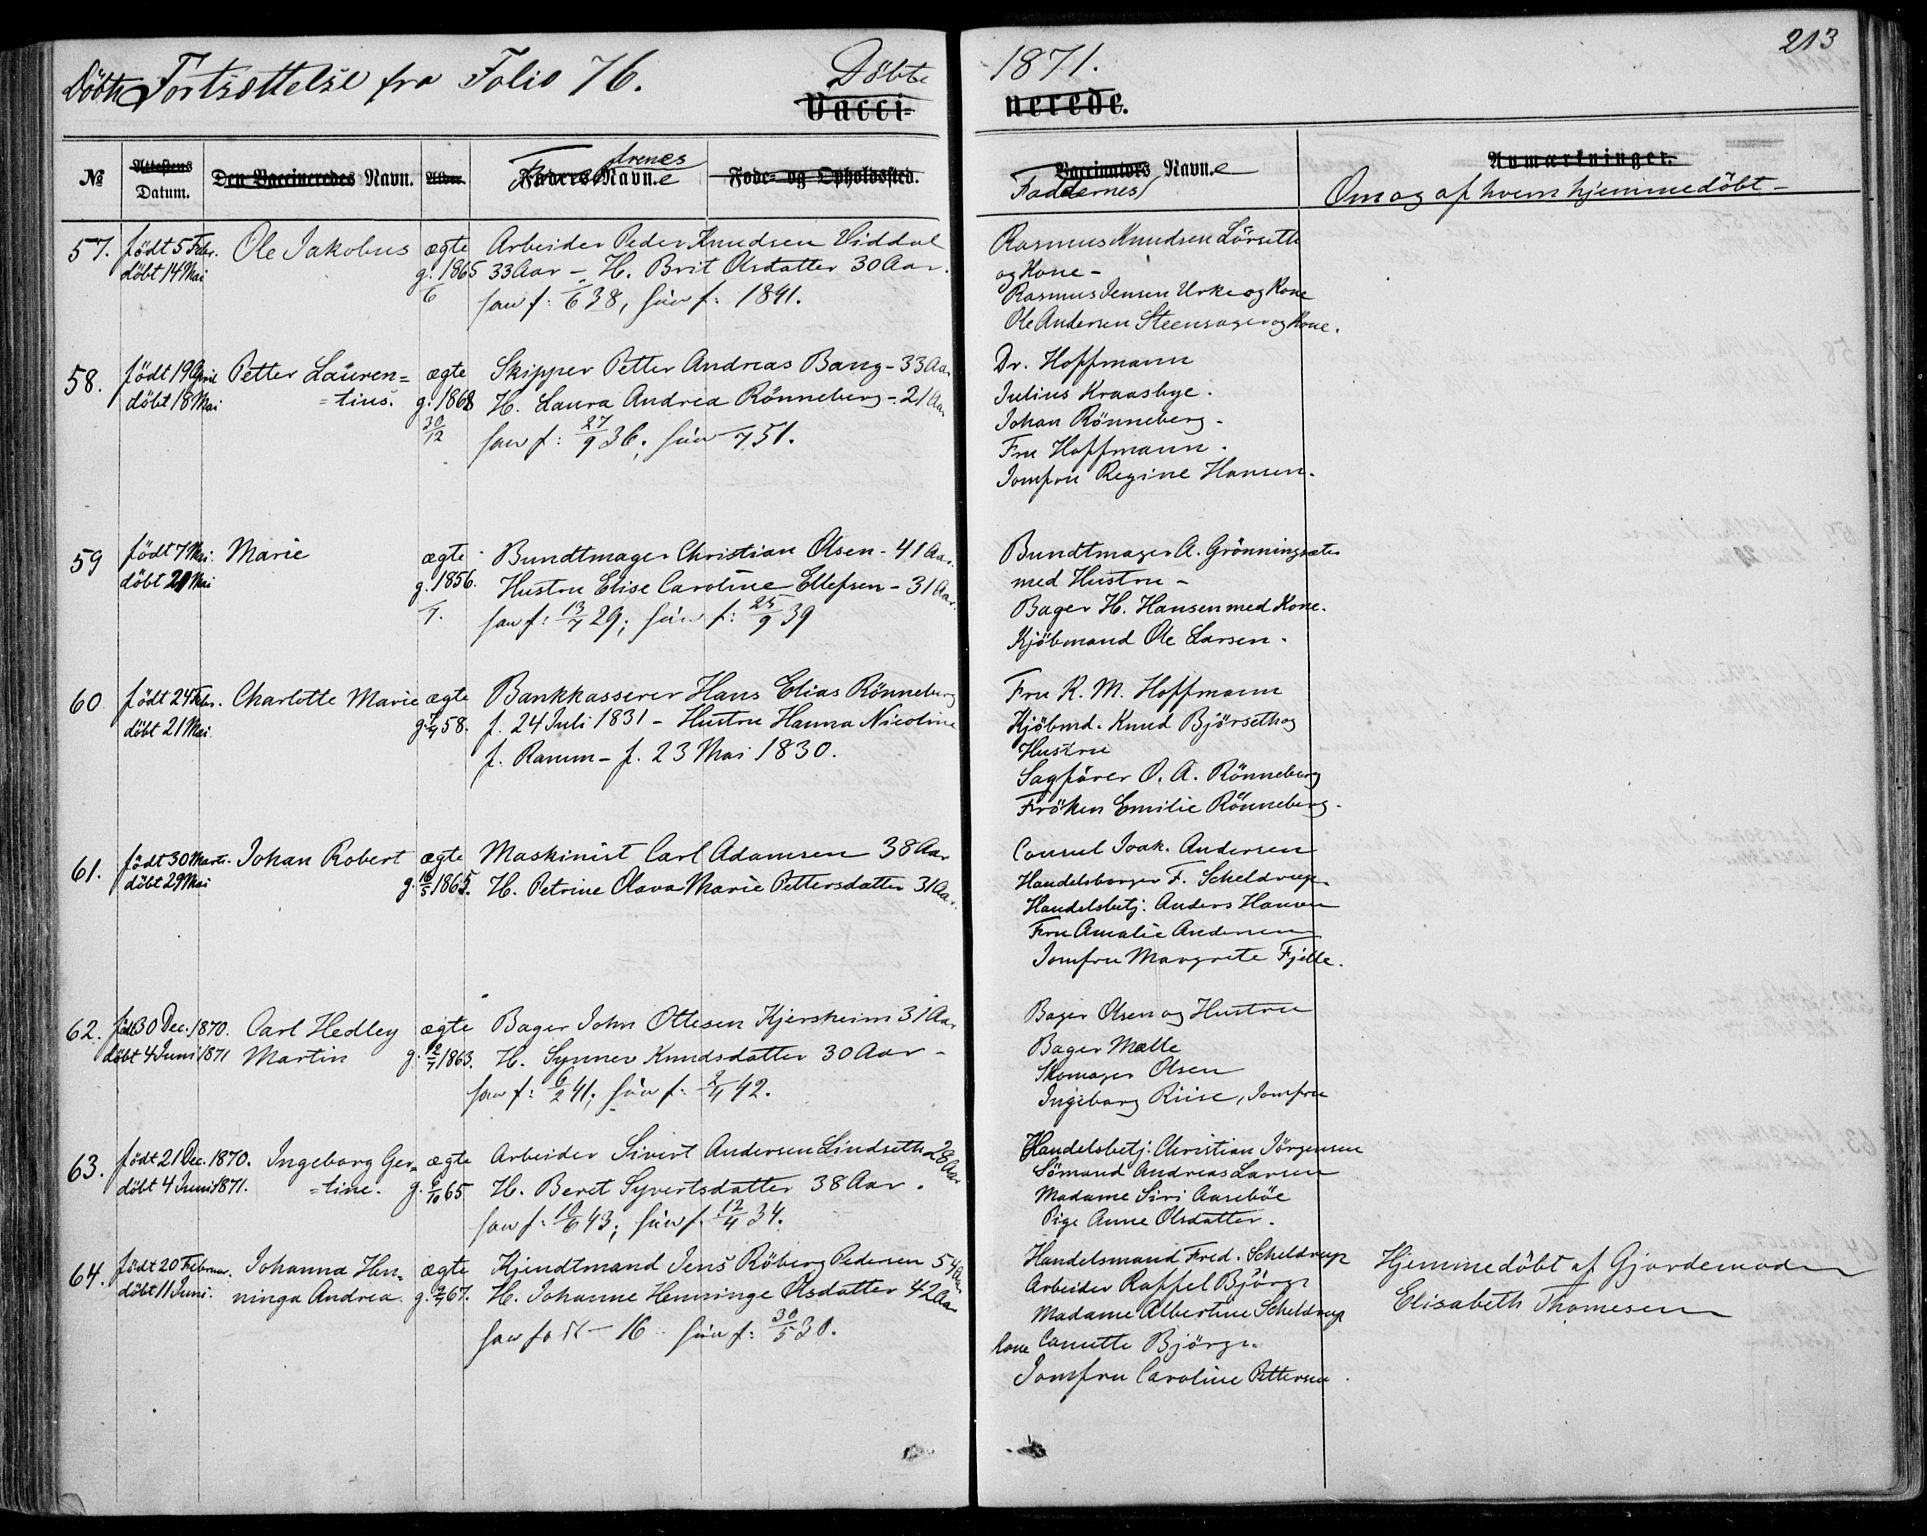 213
Döbte Fortsættelse fra Folio 76. Döbte 1871.
Vaccinerede.
№ Attestens Datum. Den Vaccineredes Navn. Alder. Faders Navne Føde- og Opholdssted. Vaccinators Navne Anmærkninger.
Faddernes Om og af hvem hjemmedöbt
57. födt 5 Febr. Ole Jakobus ægte Arbeider Peder Knudsen Viddal
döbt 14 Mai g. 1865 33 Aar – H. Brit Olsdatter 30 Aar.
6 han f: 6 38, hun f: 1841.
Rasmus Knudsen Lörseth
og Kone –
Rasmus Jensen Urke og Kone
Ole Andersen Steensager og Kone.
58. födt 19 April Petter Lauren= ægte Skipper Petter Andreas Bang – 33 Aar
döbt 18 Mai =tius. g. 1868 H. Laura Andrea Rönneberg – 21 Aar
30/12 han f: 27/9 36; hun 7 51.
Dr. Hoffmann
Julius Kraasbye.
Johan Rönneberg.
Fru Hoffmann.
Jomfru Regine Hansen.
59 födt 7 Mai. Marie ægte Bundtmager Christian Olsen – 41 Aar.
döbt 21 Mai g. 1856. Hustru Elise Caroline Ellefsen – 31 Aar.
han f: 13/7 29; hun f: 25/9 39
Bundtmager A. Grönningsæter
med Hustru –
Bager H. Hansen med Kone.
Kjöbmand Ole Larsen.
60 födt 24 Febr. Charlotte Marie ægte Bankkasserer Hans Elias Rönneberg
döbt 21 Mai. g. 58. f. 24 Juli 1831 – Hustru Hanna Nicoline
f. Ramm – f. 23 Mai 1830.
Fru K. M. Hoffmann
Kjöbmd. Knud Björseth og
Hustru
Sagförer O. A. Rönneberg
Fröken Emilie Rönneberg.
61. födt 30 Marts. Johan Robert ægte Maskinist Carl Adamsen 38 Aar
döbt 29 Mai g. 16/5 1865. H. Petrine Olava Marie Pettersdatter 31 Aar.
Consul Joak. Andersen
Handelsborger F. Scheldrup.
Handelsbetj. Anders Hansen
Fru Amalie Andersen
Jomfru Margrete Fjelle.
62. födt 30 Dec. 1870. Carl Hedley ægte Bager John Ottesen Kjersheim 31 Aar
döbt 4 Juni 1871 Martin g. 1863. H. Synnev Knudsdatter 30 Aar –
han f: 6/2 41; hun f: 42.
Bager Olsen og Hustru
Bager Malle
Skomager Olsen
Ingeborg Riise, Jomfru
63. födt 21 Dec. 1870. Ingeborg Ger= ægte Arbeider Sivert Andersen Lindseth 28 Aar
döbt 4 Juni 1871. =tine. g. 65 H. Beret Syvertsdatter 38 Aar.
han f: 10/6 43; hun f. 12/4 34.
Handelsbetj. Christian Jörgensen
Sömand Andreas Larsen
Madame Siri Aaseböe
Pige Anne Olsdatter.
64. födt 20 Februar. Johanna Hen= ægte Kjendtmand Jens Röberg Pedersen 54 Aar
döbt 11 Juni. ninga Andrea. g. 67. H. Johanne Henninge Olsdatter 42 Aar
han 16 hun f: 30/5 30.
Handelsmand Fred. Scheldrup
Arbeider Raffel Björge
Madame Albertine Scheldrup
Kone Camette Björge.
Jomfru Caroline Pettersen.
Hjemmedöbt af Gjordemoder
Elisabeth Thomesen